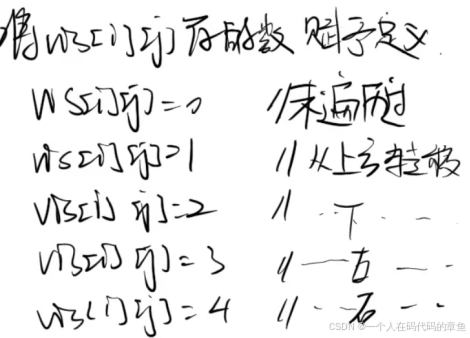 将vis[i][j]存的数 赋予定义
vis[i][j]=0 //未遍历过
vis[i][j]=1 //从上
vis[i][j]=2 // ‥下‥‥
vis[i][j]=3 // 一一右 一‥
vis[i][j]=4 // ‥右‥‥
CSDN @一个人在码代码的章鱼